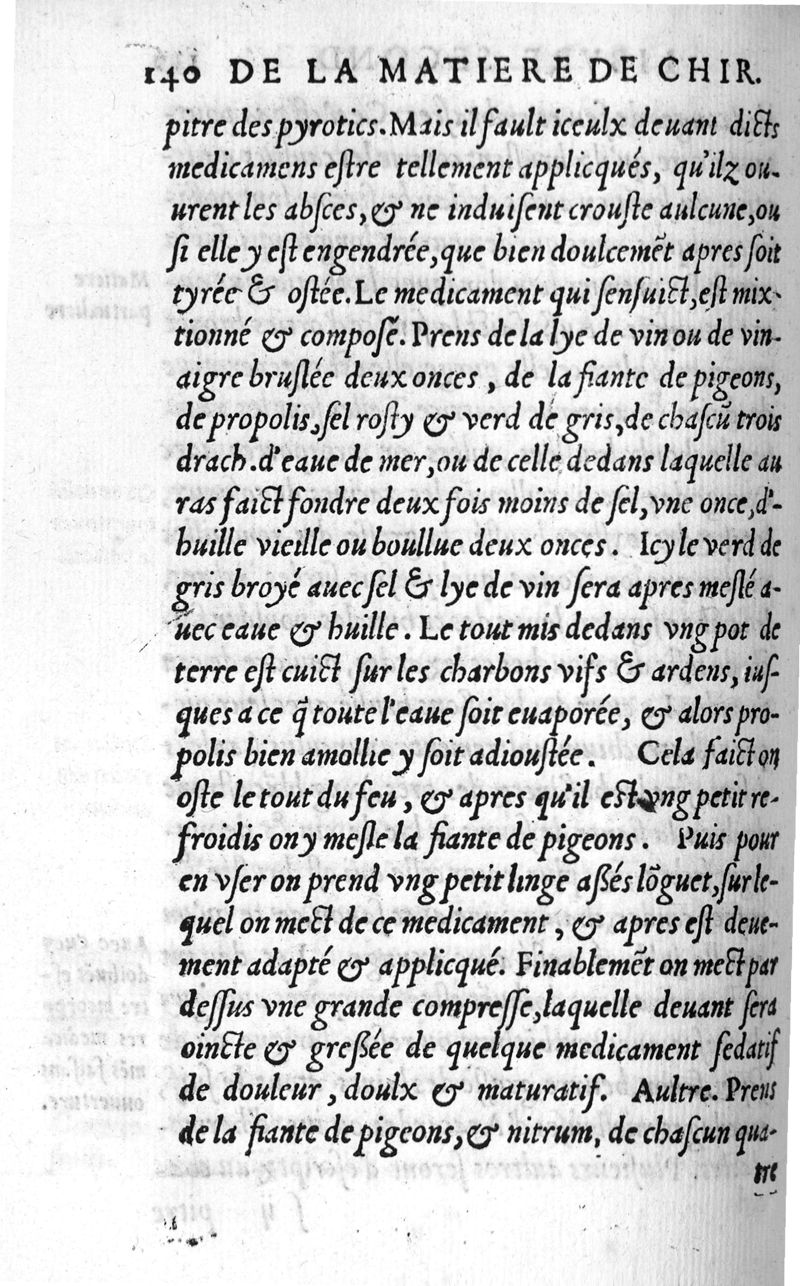 140 DE LA MATIERE DE CHIR.
pitre des pyrotics. Mais il fault iceulx deuant dicts
medicamens estre tellement applicqués, qu'ilz ou-
urent les absces, & ne induisent crouste aulcune, ou
si elle y est engendrée, que bien doulcemẽt apres soit
tyrée & ostée. Le medicament qui sensuict, est mix-
tionné & composé. Prens de la lye de vin ou de vin-
aigre bruslée deux onces, de la fiante de pigeons,
de propolis, sel rosty & verd de gris, de chascũ trois
drach. d'eaue de mer, ou de celle dedans laquelle au
ras faict fondre deux fois moins de sel, vne once, d'-
huille vieille ou boullue deux onces. Icy le verd de
gris broyé auec sel & lye de vin sera apres meslé a-
uec eaue & huille. Le tout mis dedans vng pot de
terre est cuict sur les charbons vifs & ardens, ius-
ques a ce q̃ toute l'eaue soit euaporée, & alors pro-
polis bien amollie y soit adioustée. Cela faict on
oste le tout du feu, & apres qu'il est vng petit re-
froidis on y mesle la fiante de pigeons. Puis pour
en vser on prend vng petit linge assés lõguet, sur le-
quel on mect de ce medicament, & apres est deue-
ment adapté & applicqué. Finablemẽt on mect par
dessus vne grande compresse, laquelle deuant sera
oincte & gressée de quelque medicament sedatif
de douleur, doulx & maturatif. Aultre. Prens
de la fiante de pigeons, & nitrum, de chascun qua-
tre